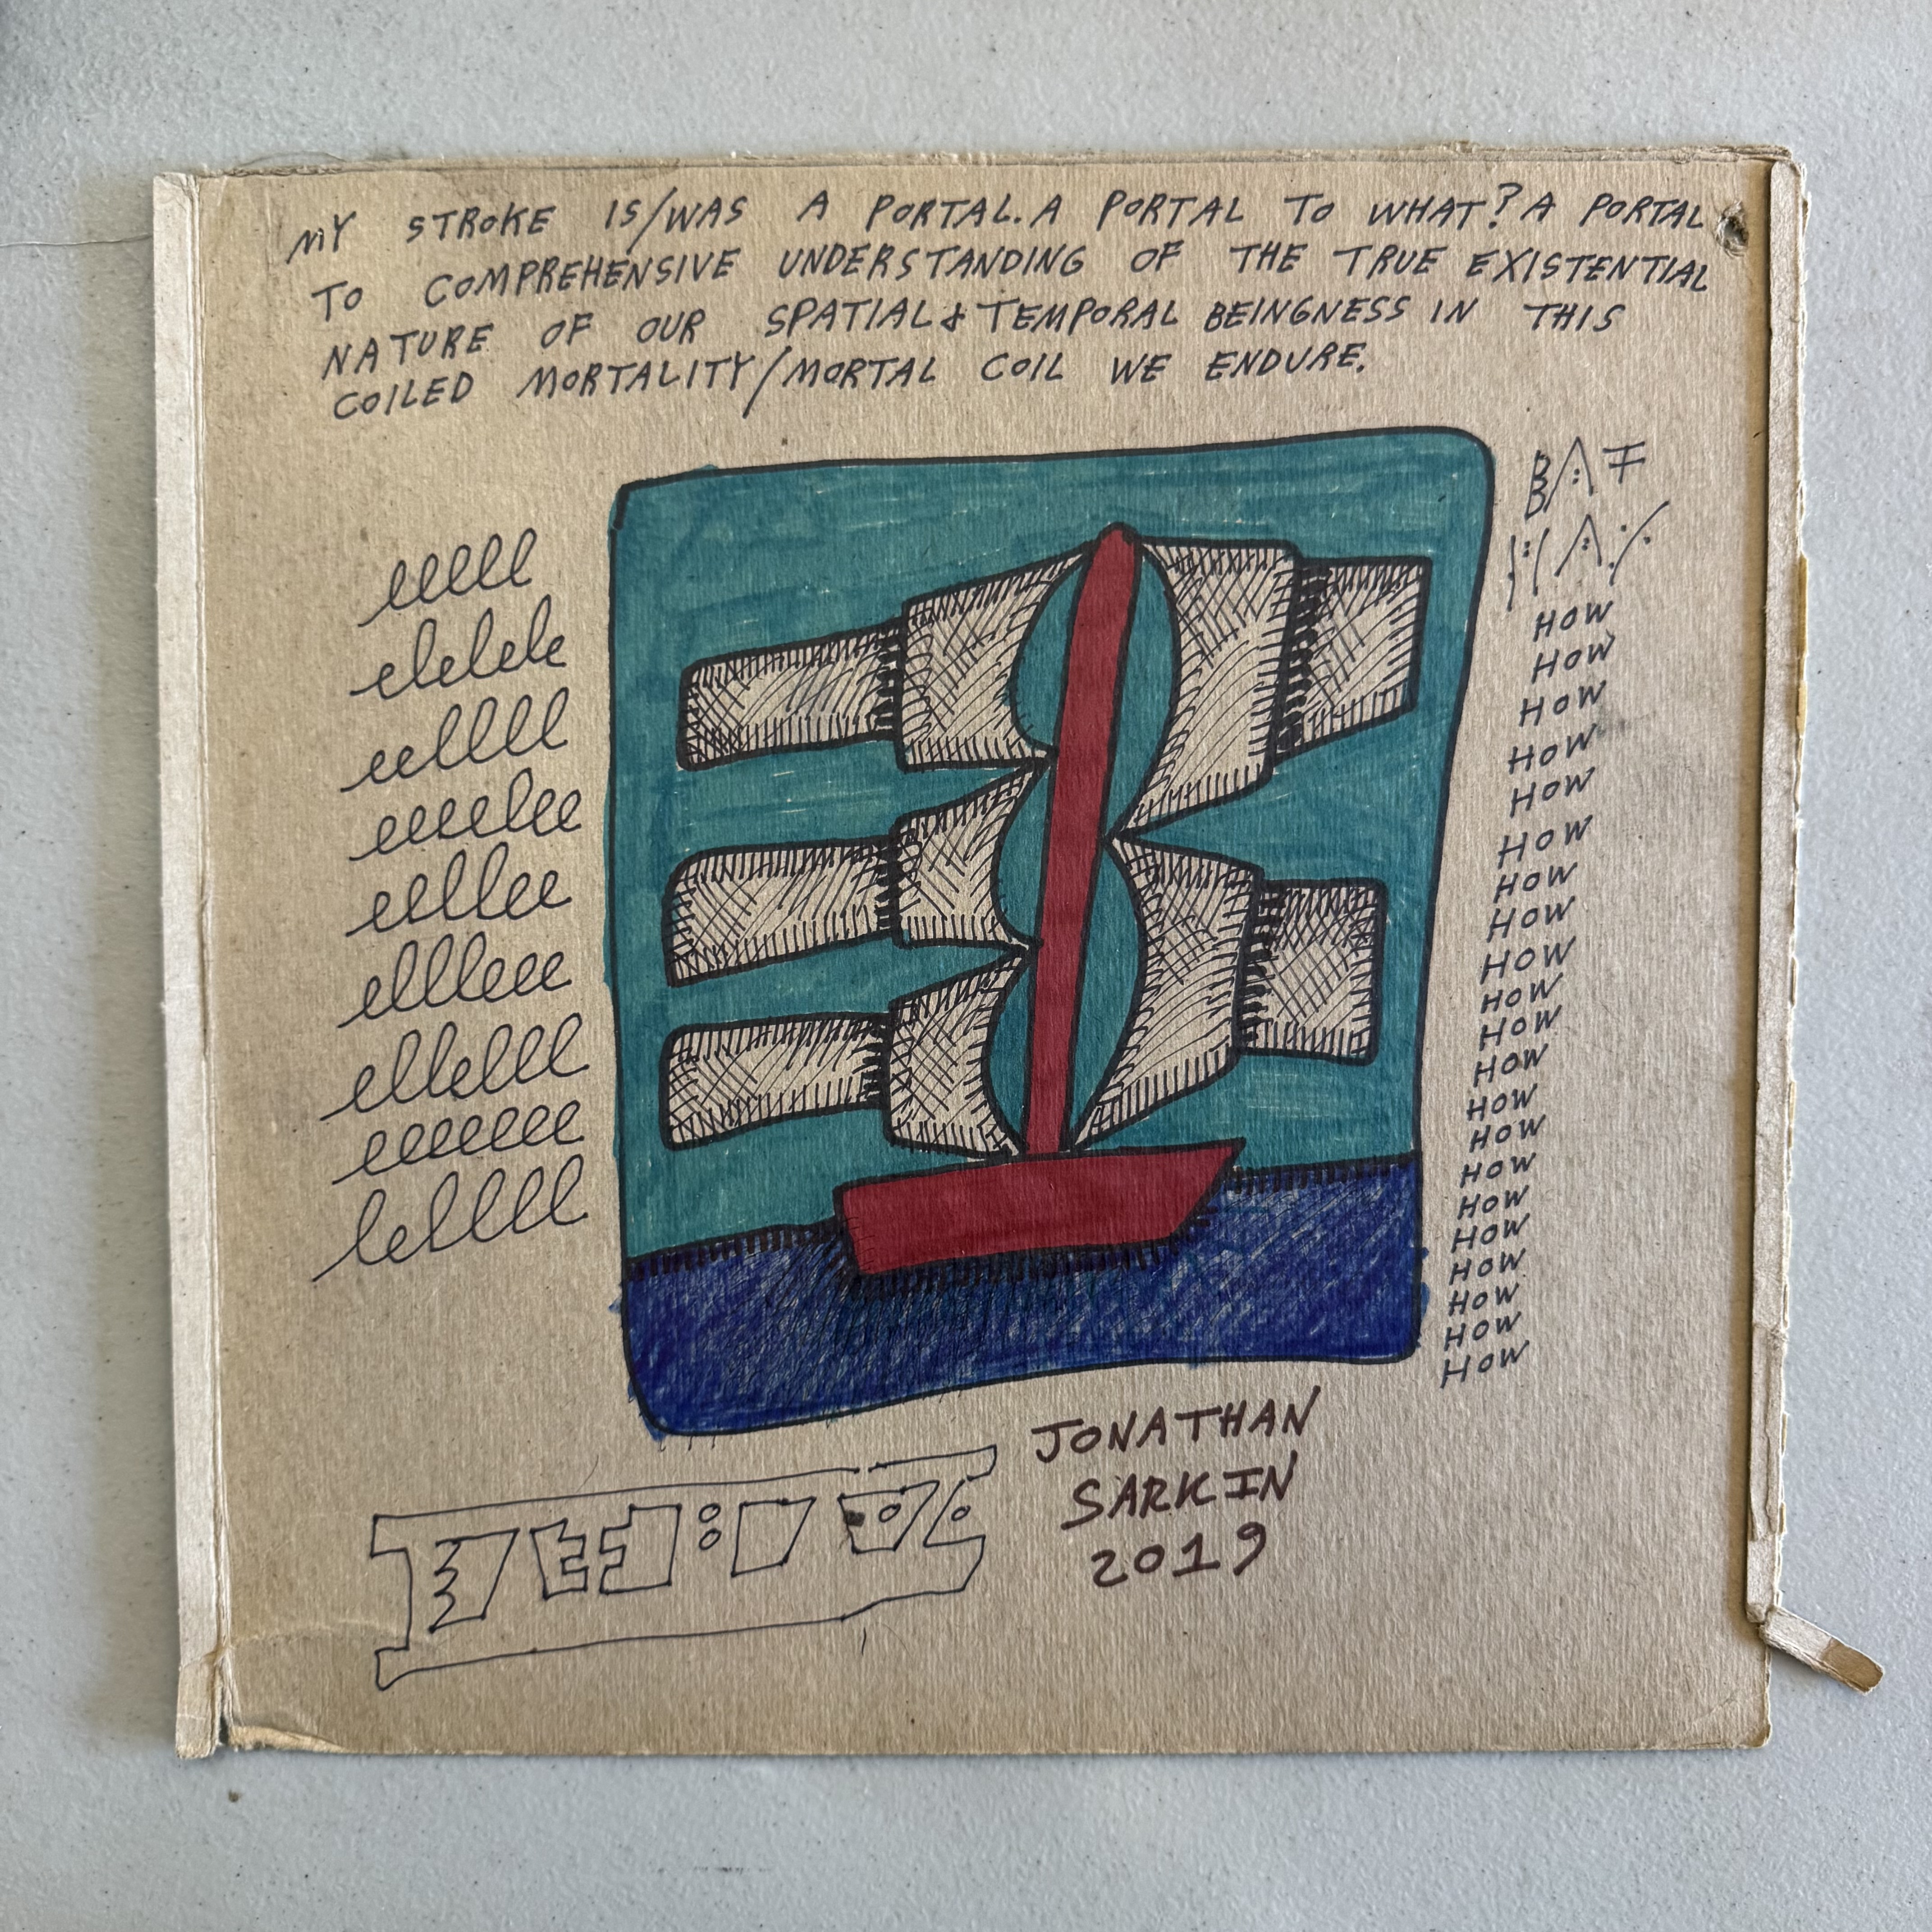 MY STROKE IS/WAS A PORTAL. A PORTAL TO WHAT? A PORTAL
TO COMPREHENSIVE UNDERSTANDING OF THE TRUE EXISTENTIAL
NATURE OF OUR SPATIAL & TEMPORAL BEINGNESS IN THIS
COILED MORTALITY/MORTAL COIL WE ENDURE.
elelele
eelllee
ellleee
ellelll
eeeeeee
HOW
HOW
HOW
HOW
HOW
HOW
HOW
HOW
HOW
HOW
HOW
HOW
HOW
HOW
HOW
HOW
HOW
HOW
HOW
HOW
HOW
JONATHAN
SARKIN
2019